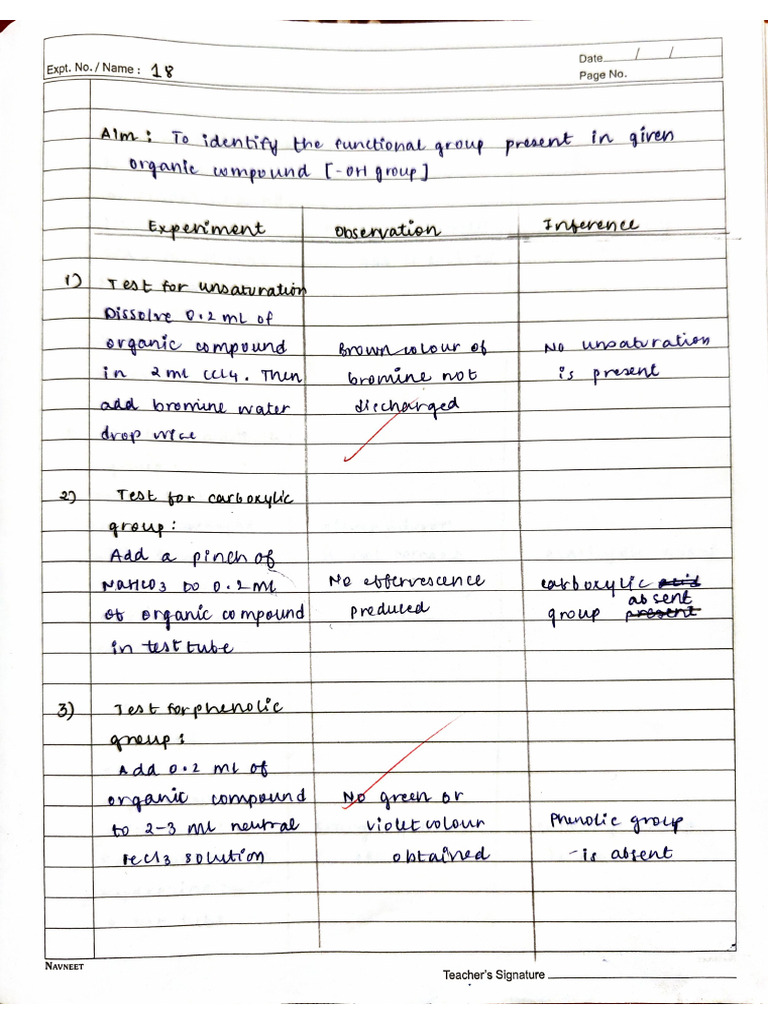 Date / /
Expt. No. / Name : 18
Page No.
Aim : To identify the functional group present in given
organic compound [-OH group]
Experiment Observation Inference
1) Test for unsaturation
Dissolve 0.2 ml of
organic compound Brown colour of No unsaturation
in 2 ml CCl4. Then bromine not is present
add bromine water discharged
drop wise
2) Test for carboxylic
group :
Add a pinch of
NaHCO3 to 0.2 ml No effervescence carboxylic acid
absent
of organic compound produced group present
in test tube
3) Test for phenolic
group :
Add 0.2 ml of
organic compound No green or
to 2-3 ml neutral violet colour Phenolic group
FeCl3 solution obtained - is absent
NAVNEET
Teacher's Signature